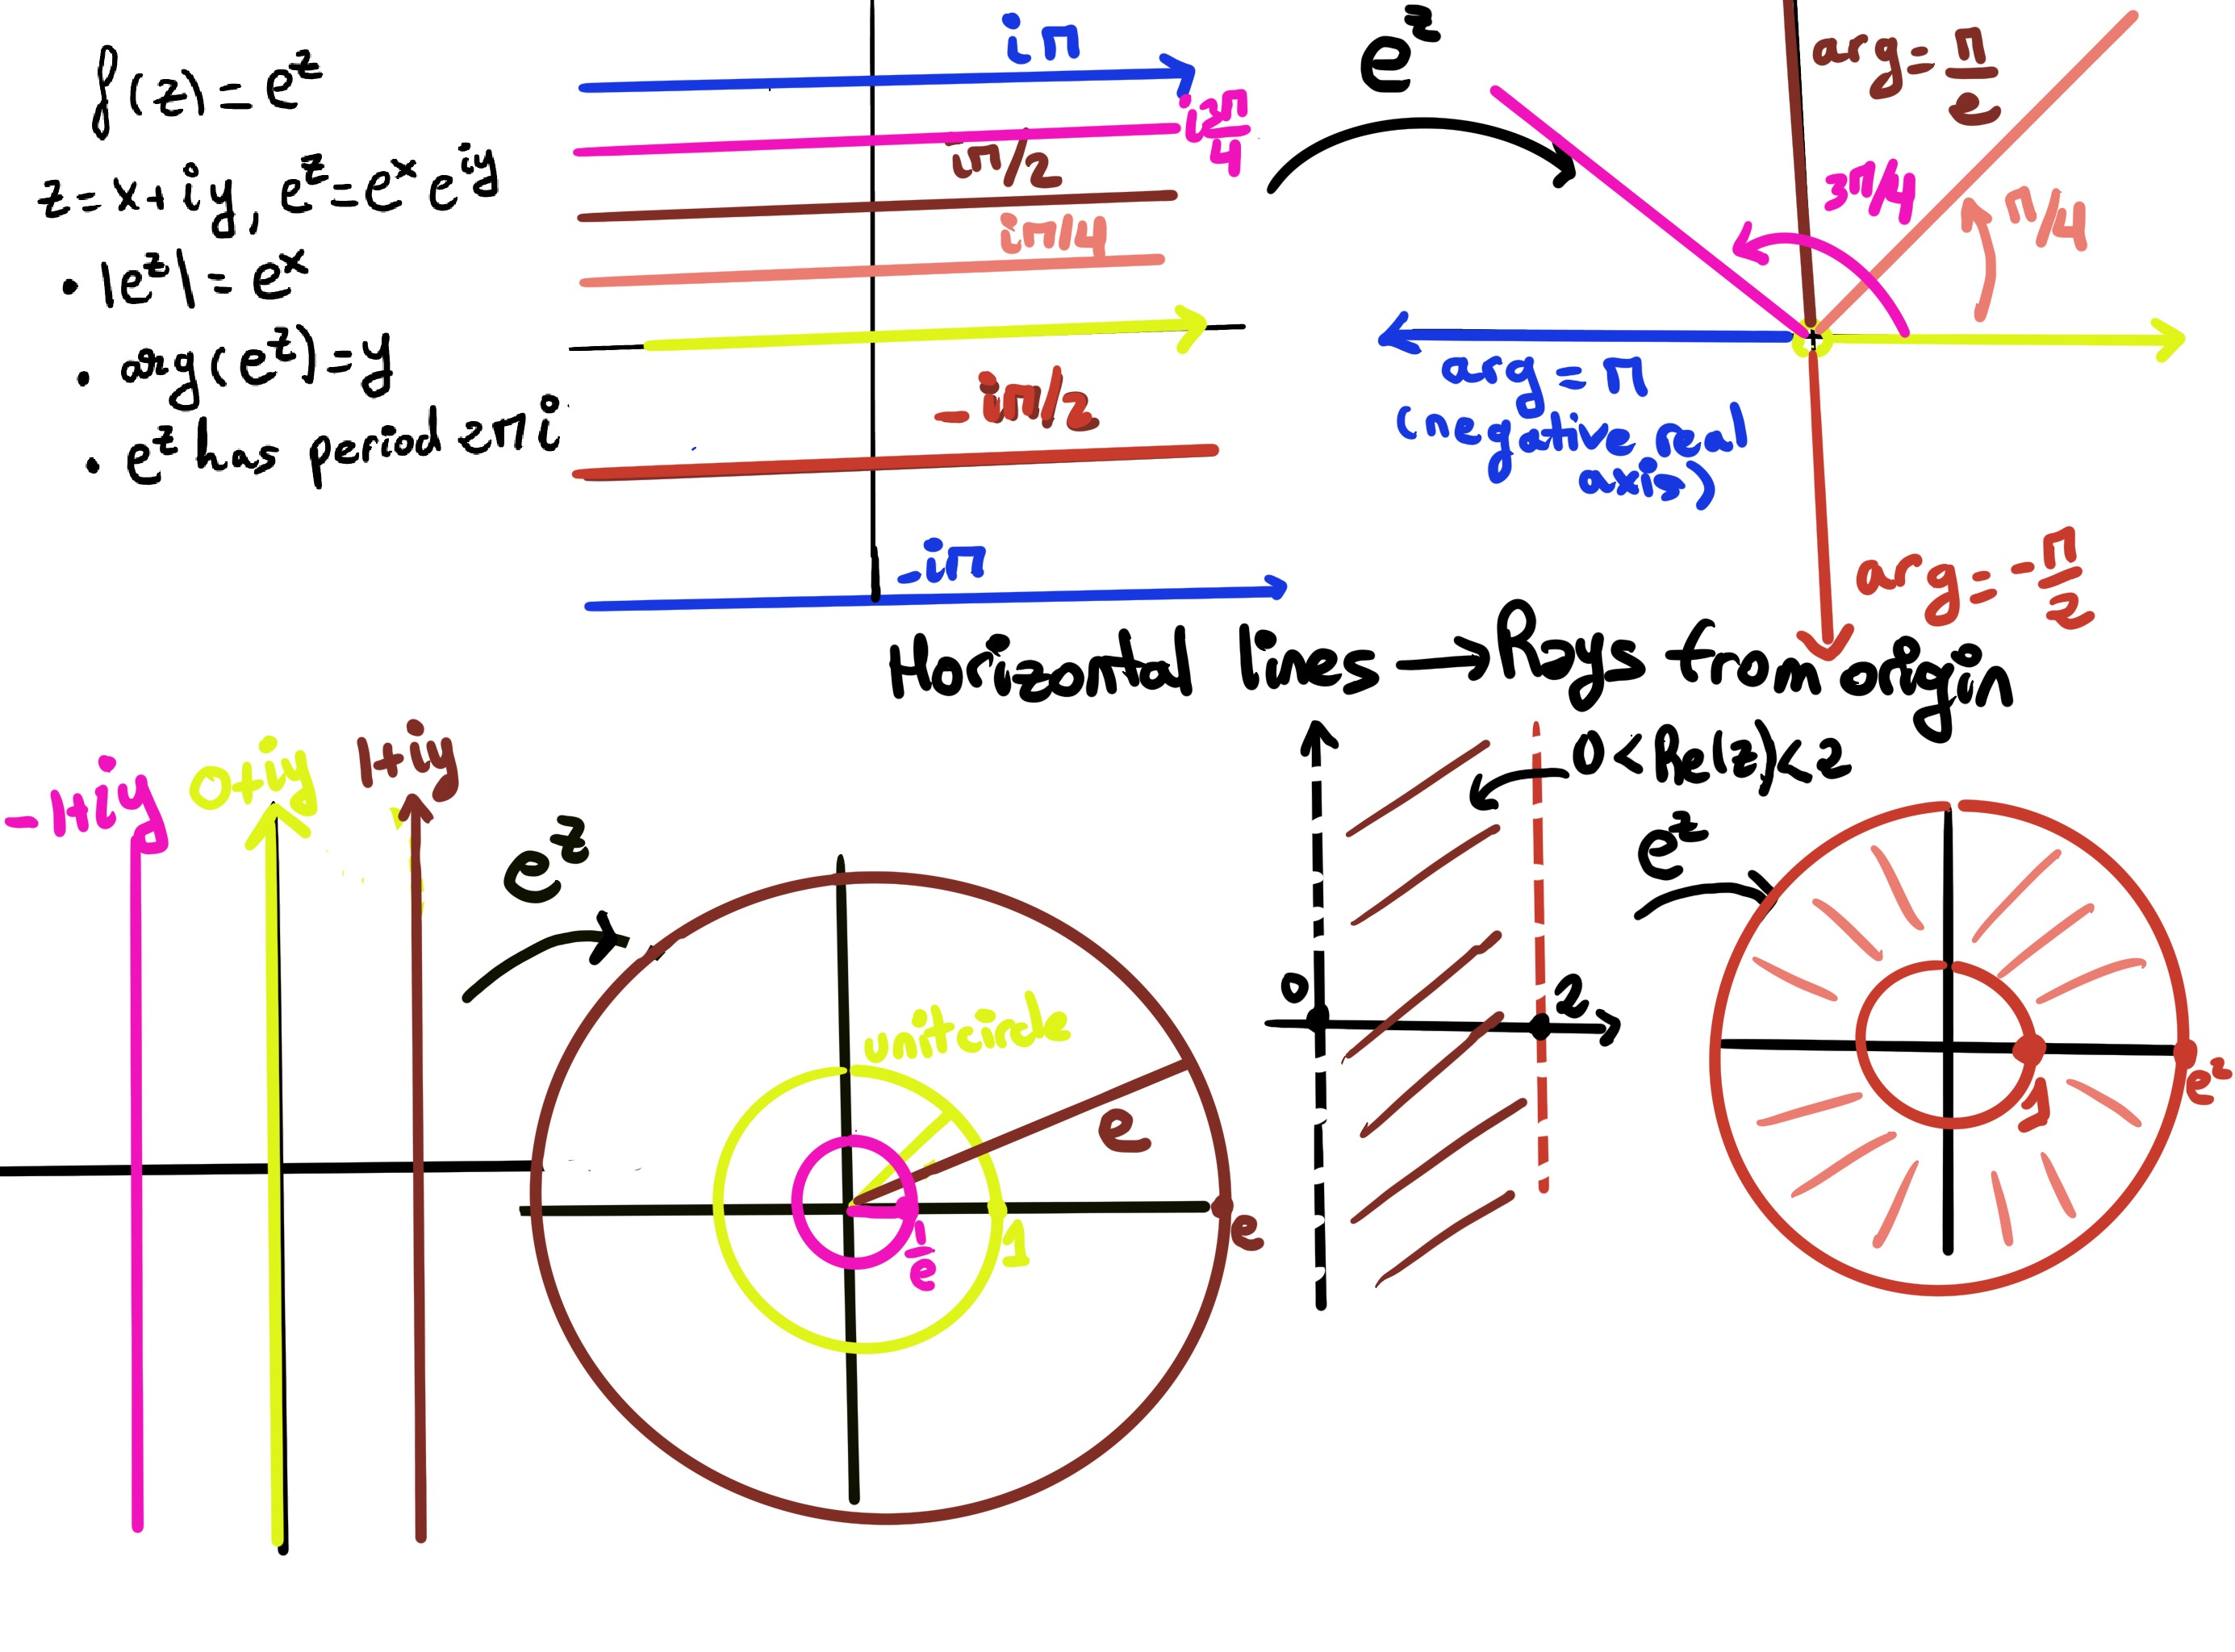 f(z)=e^z
z=x+iy, e^z=e^x e^iy
• |e^z|=e^x
• arg(e^z)=y
• e^z has period 2πi
iπ
i3π/4
iπ/2
iπ/4
-iπ/2
-iπ
e^z
arg=π/2
3π/4
π/4
arg=π
(negative real
axis)
arg=-π/2
Horizontal lines → Rays from origin
-1+iy
0+iy
1+iy
e^z
unit circle
e
1/e
1
e
0<Re(z)<2
0
2
e^z
1
e^2